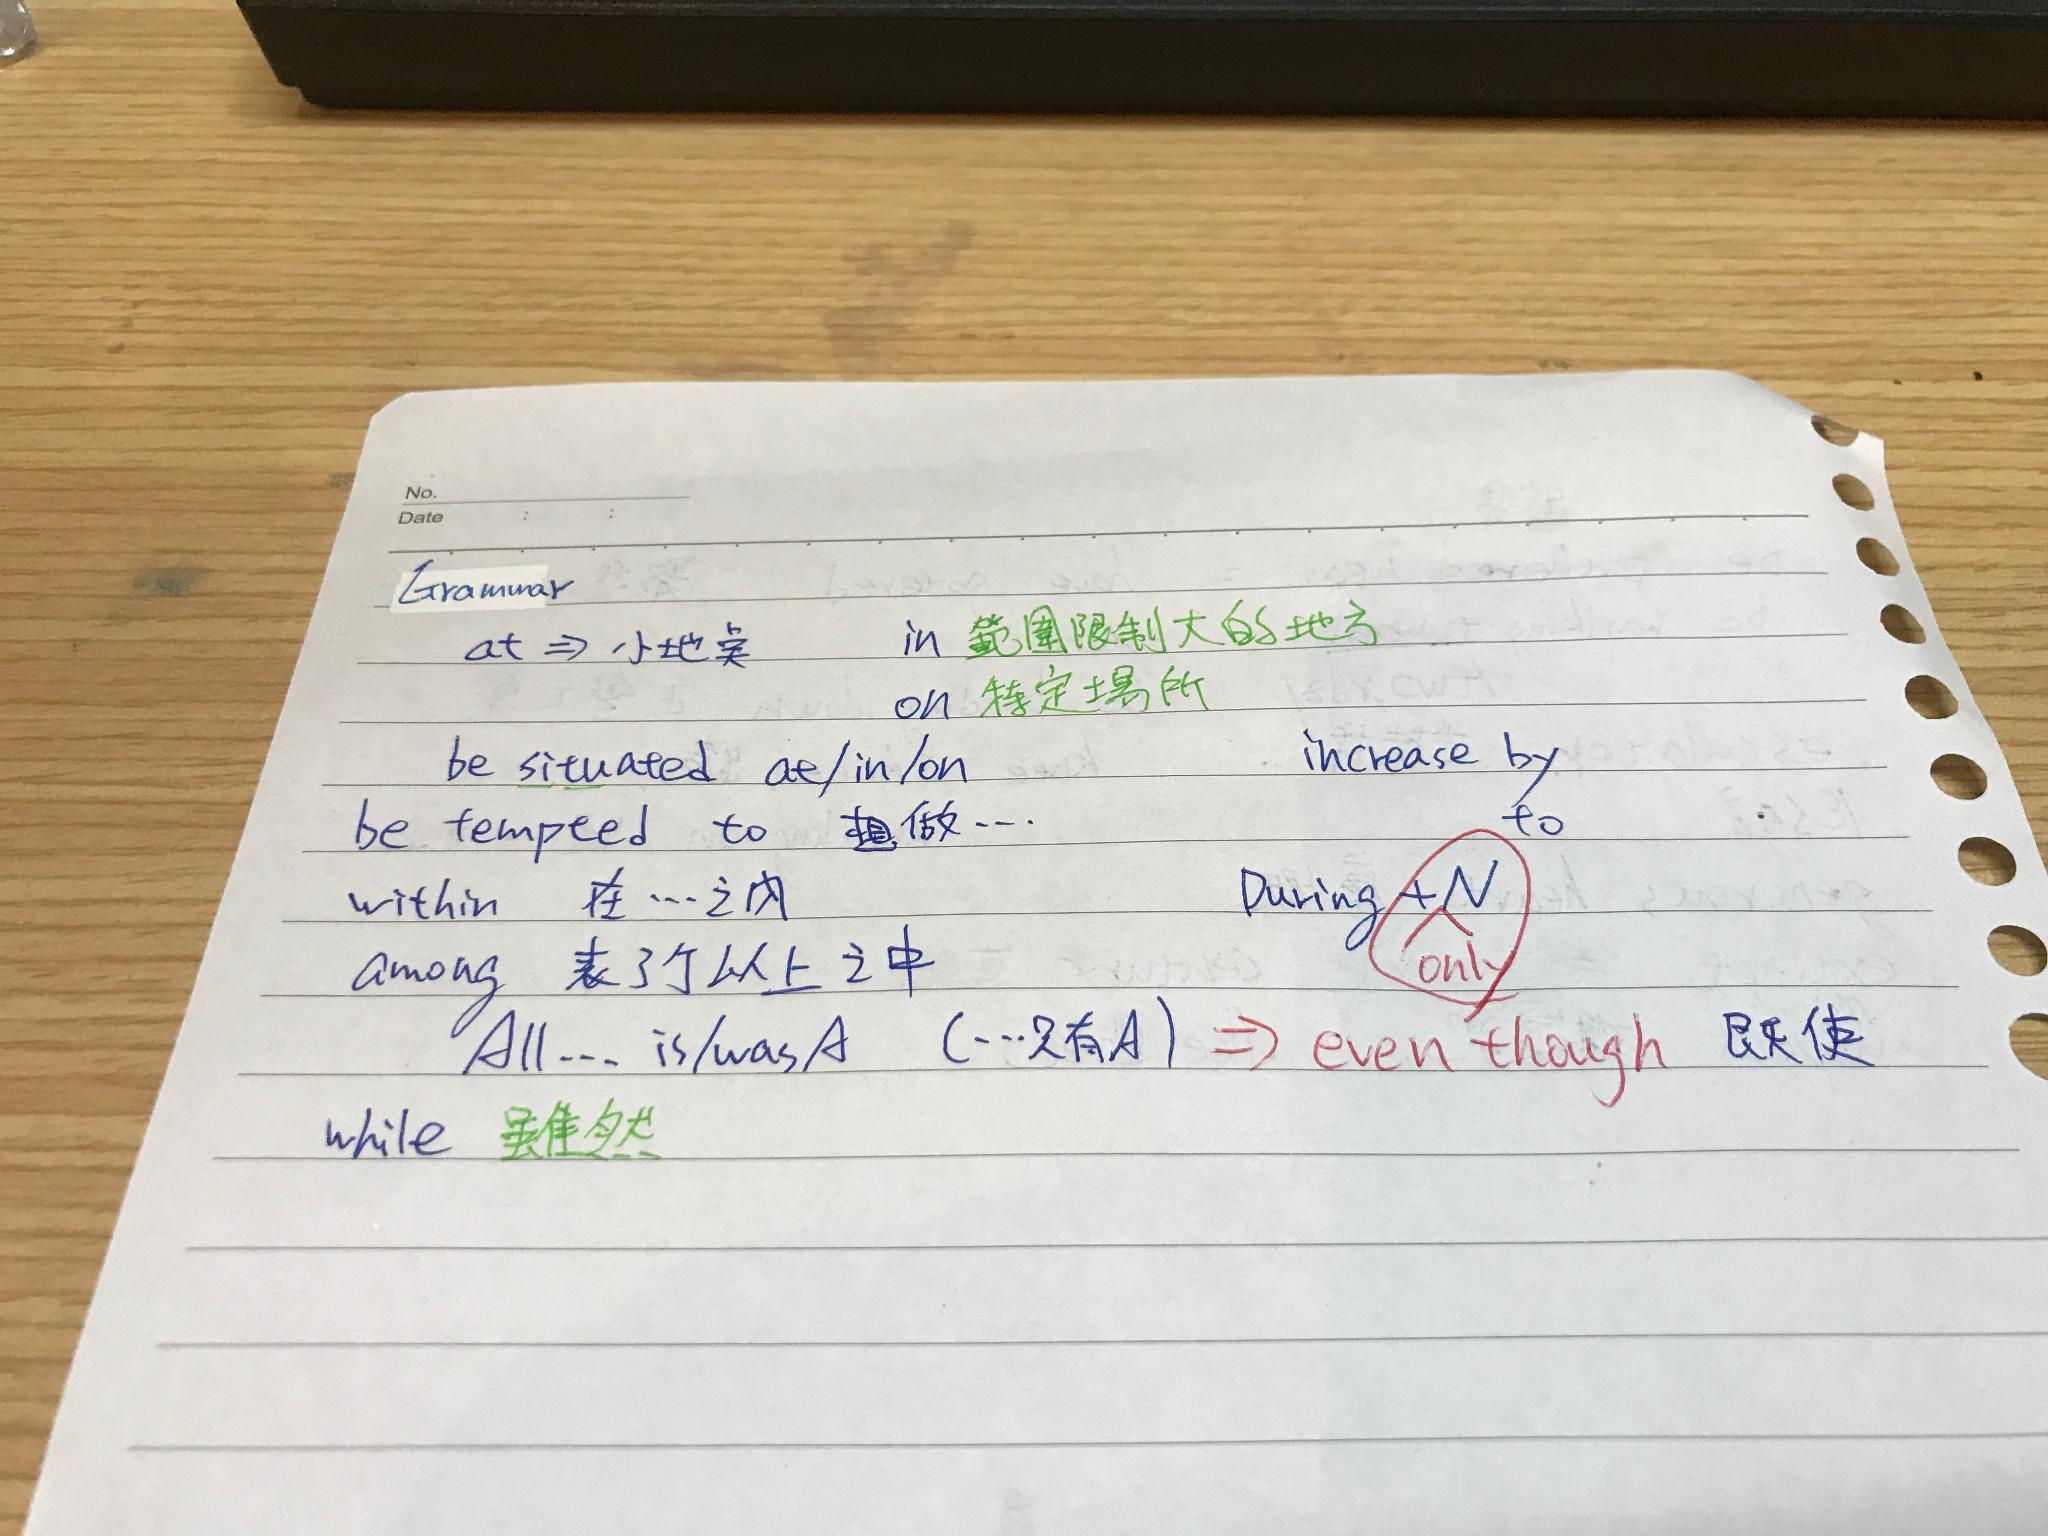 No.
Date : :
Grammar
at ⇒ 小地点 in 範圍限制大的地方
on 特定場所
be situated at/in/on increase by
be tempted to 想做… to
within 在…之内 During + N
only
among 表3个以上之中
All … is/was A (…只有A) ⇒ even though 既使
while 雖然